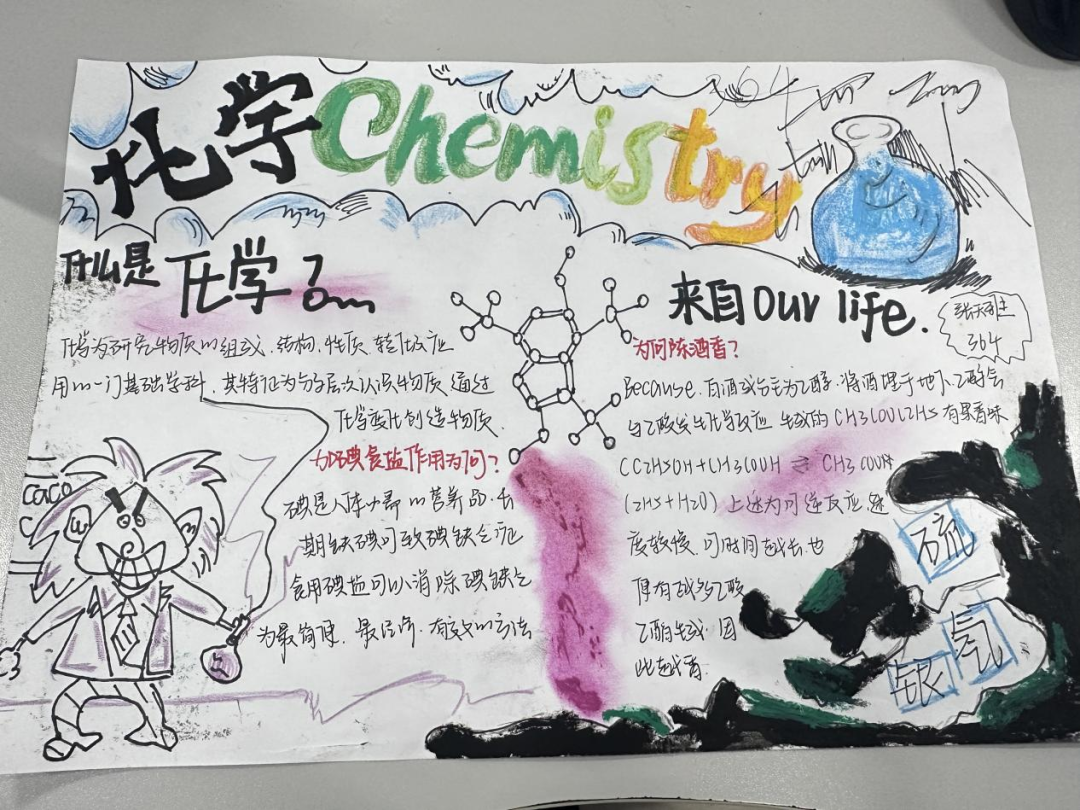 化学Chemistry
364
什么是 化学?
化学为研究物质的组成、结构、性质、转化及应
用的一门基础学科、其特征为分子层次认识物质 通过
化学变化创造物质.
加碘食盐作用为何?
碘是人体必需的营养品,长
期缺碘可致碘缺乏症
食用碘盐可以消除碘缺乏
为最简便、最经济、有效的方法
CaCO
C
来自 our life.
364
为何陈酒香?
Because. 白酒成分主为乙醇.将酒埋于地下.乙醇会
与乙酸发生化学反应 生成的 CH3COOC2H5 有果香味
CC2H5OH+CH3COOH ⇌ CH3COOH
(2H5+H2O) 上述为可逆反应.速
度较慢.可时间越长.也
便有越多乙酸
乙酯生成.因
此越香
硫
氢
银